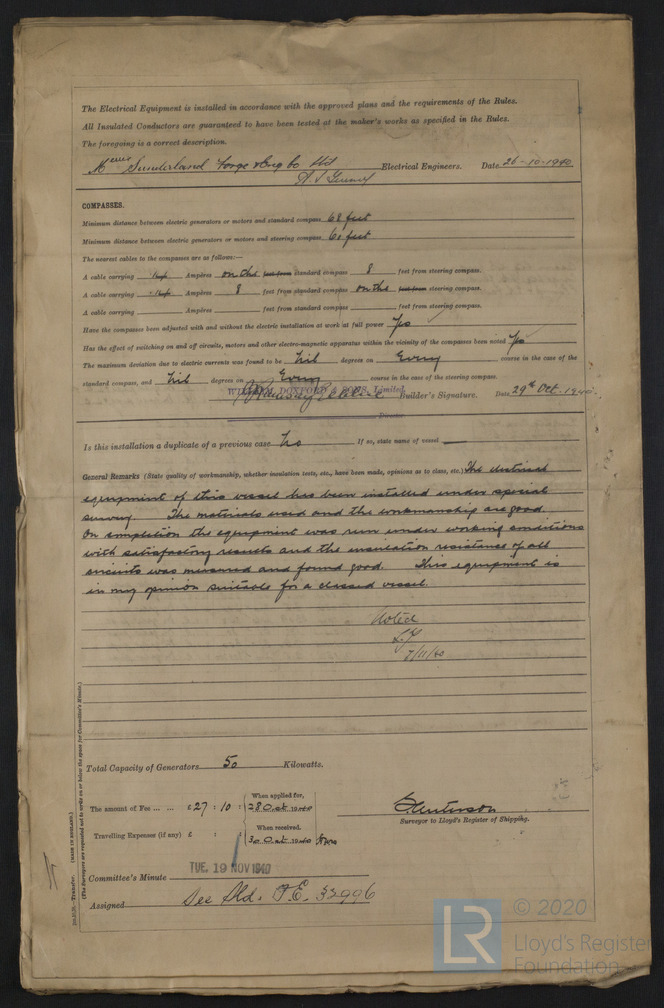 The Electrical Equipment is installed in accordance with the approved plans and the requirements of the Rules.
All Insulated Conductors are guaranteed to have been tested at the maker's works as specified in the Rules.
The foregoing is a correct description.
Messrs Sunderland Forge & Eng Co Ltd Electrical Engineers. Date 26-10-1940
COMPASSES.
Minimum distance between electric generators or motors and standard compass 68 feet
Minimum distance between electric generators or motors and steering compass 60 feet
The nearest cables to the compasses are as follows:—
A cable carrying Ampères on the feet from standard compass 8 feet from steering compass.
A cable carrying Ampères 8 feet from standard compass on the feet from steering compass.
A cable carrying Ampères feet from standard compass feet from steering compass.
Have the compasses been adjusted with and without the electric installation at work at full power Yes
Has the effect of switching on and off circuits, motors and other electro-magnetic apparatus within the vicinity of the compasses been noted Yes
The maximum deviation due to electric currents was found to be Nil degrees on Every course in the case of the
standard compass, and Nil degrees on Every course in the case of the steering compass.
WILLIAM DOXFORD & SONS, Limited.
Builder's Signature. Date 29th Oct. 1940
Director.
Is this installation a duplicate of a previous case No If so, state name of vessel —
General Remarks (State quality of workmanship, whether insulation tests, etc., have been made, opinions as to class, etc.) The electrical
equipment of this vessel has been installed under special
survey. The materials used and the workmanship are good.
On completion the equipment was run under working conditions
with satisfactory results and the insulation resistance of all
circuits was measured and found good. This equipment is
in my opinion suitable for a classed vessel.
Noted
7/11/40
Total Capacity of Generators 50 Kilowatts.
When applied for,
The amount of Fee ... ... £27 : 10 : 28 Oct 1940
Surveyor to Lloyd's Register of Shipping.
When received,
Travelling Expenses (if any) £ : : 30 Oct 1940
TUE. 19 NOV 1940
Committee's Minute
Assigned See Sld. F.E. 32996
(MADE IN ENGLAND.)
(The Surveyors are requested not to write on or below the space for Committee's Minute.)
Transfer.
LR
© 2020
Lloyd's Register
Foundation